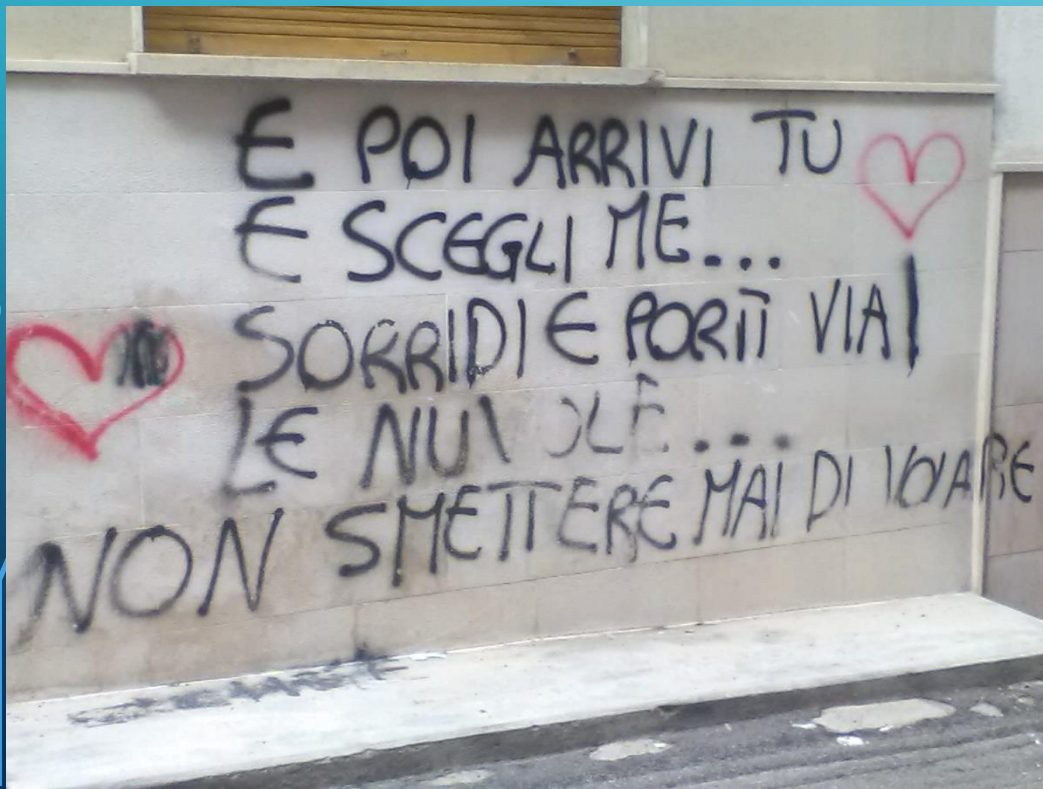 E POI ARRIVI TU
E SCEGLI ME...
SORRIDI E PORTI VIA
LE NUVOLE...
NON SMETTERE MAI DI VOLARE